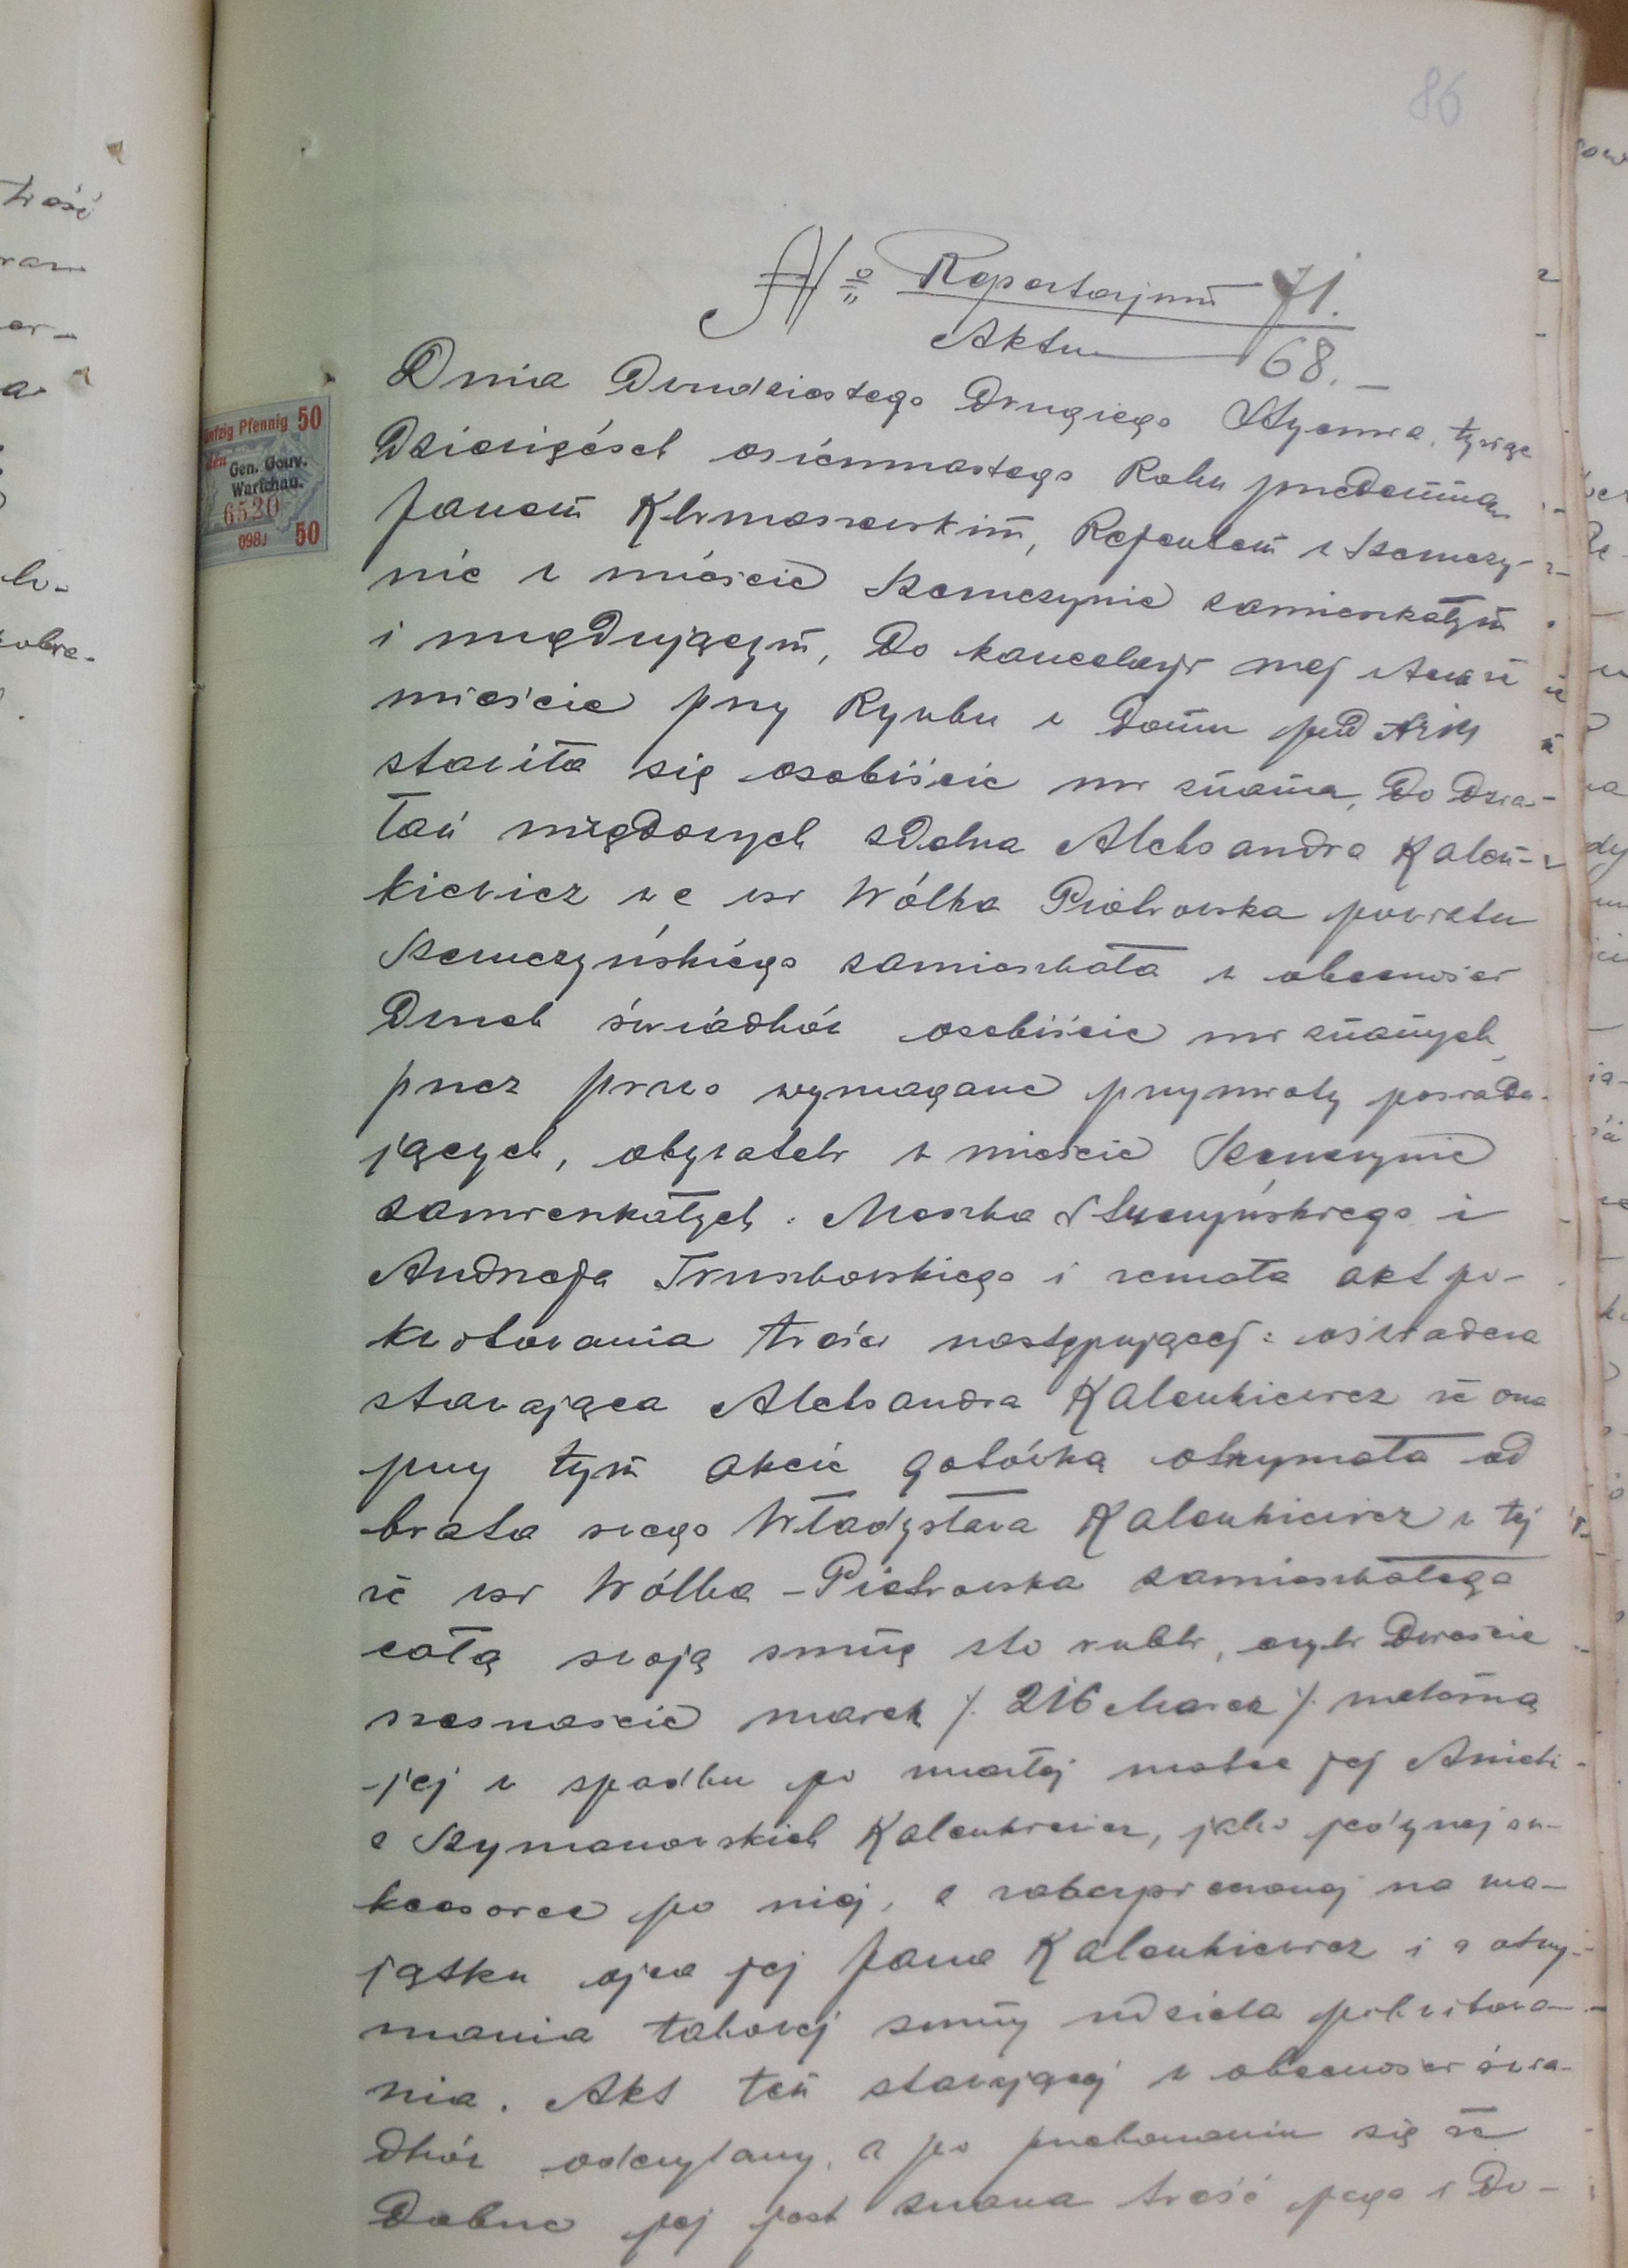 86
№ Repertorjum 71.
Aktu 68.-
Dnia Dwudziestego Drugiego Stycznia, tysiąc
Dziewięćset osiemnastego Roku przedemną
Janem Klimaszewskim, Rejentem w Szczuczy-
nie w mieście Szczuczynie zamieszkałym
i urzędującym, Do kancelarji mej w temże
mieście przy Rynku w Domu pod
stawiła się osobiście mi znana, Do Dzia-
łań urzędowych zdolna Aleksandra Kalen-
kiewicz we wsi Wólka Piotrowska powiatu
Szczuczyńskiego zamieszkała w obecności
Dwuch świadków osobiście mi znanych,
przez prawo wymagane przymioty posiada-
jących, obywateli w mieście Szczuczynie
zamieszkałych: Moszka i
Andrzeja Truszkowskiego i zeznała akt po-
kwitowania treści następującej: oświadcza
stawająca Aleksandra Kalenkiewicz że ona
przy tym akcie gotówką otrzymała od
brata swego Władysława Kalenkiewicz w tej
że wsi Wólka-Piotrowska zamieszkałego
całą swoją sumę sto rubli, czyli Dwieście
szesnaście marek /. 216 Marek /. należną
jej w spadku po zmarłej matce jej Anieli
z Szymanowskich Kalenkiewicz, jako jedynej suk-
cesorce po niej, a zabezpieczonej na ma-
jątku ojca jej Jana Kalenkiewicz i z otrzy-
mania takowej sumy udziela pokwitowa-
nia. Akt ten stawającej w obecności świa-
dków odczytany, a po przekonaniu się że
Dobrze jej jest znana treść jego i Do-
Fünfzig Pfennig 50
Gen. Gouv.
Warschau.
6520
098J 50